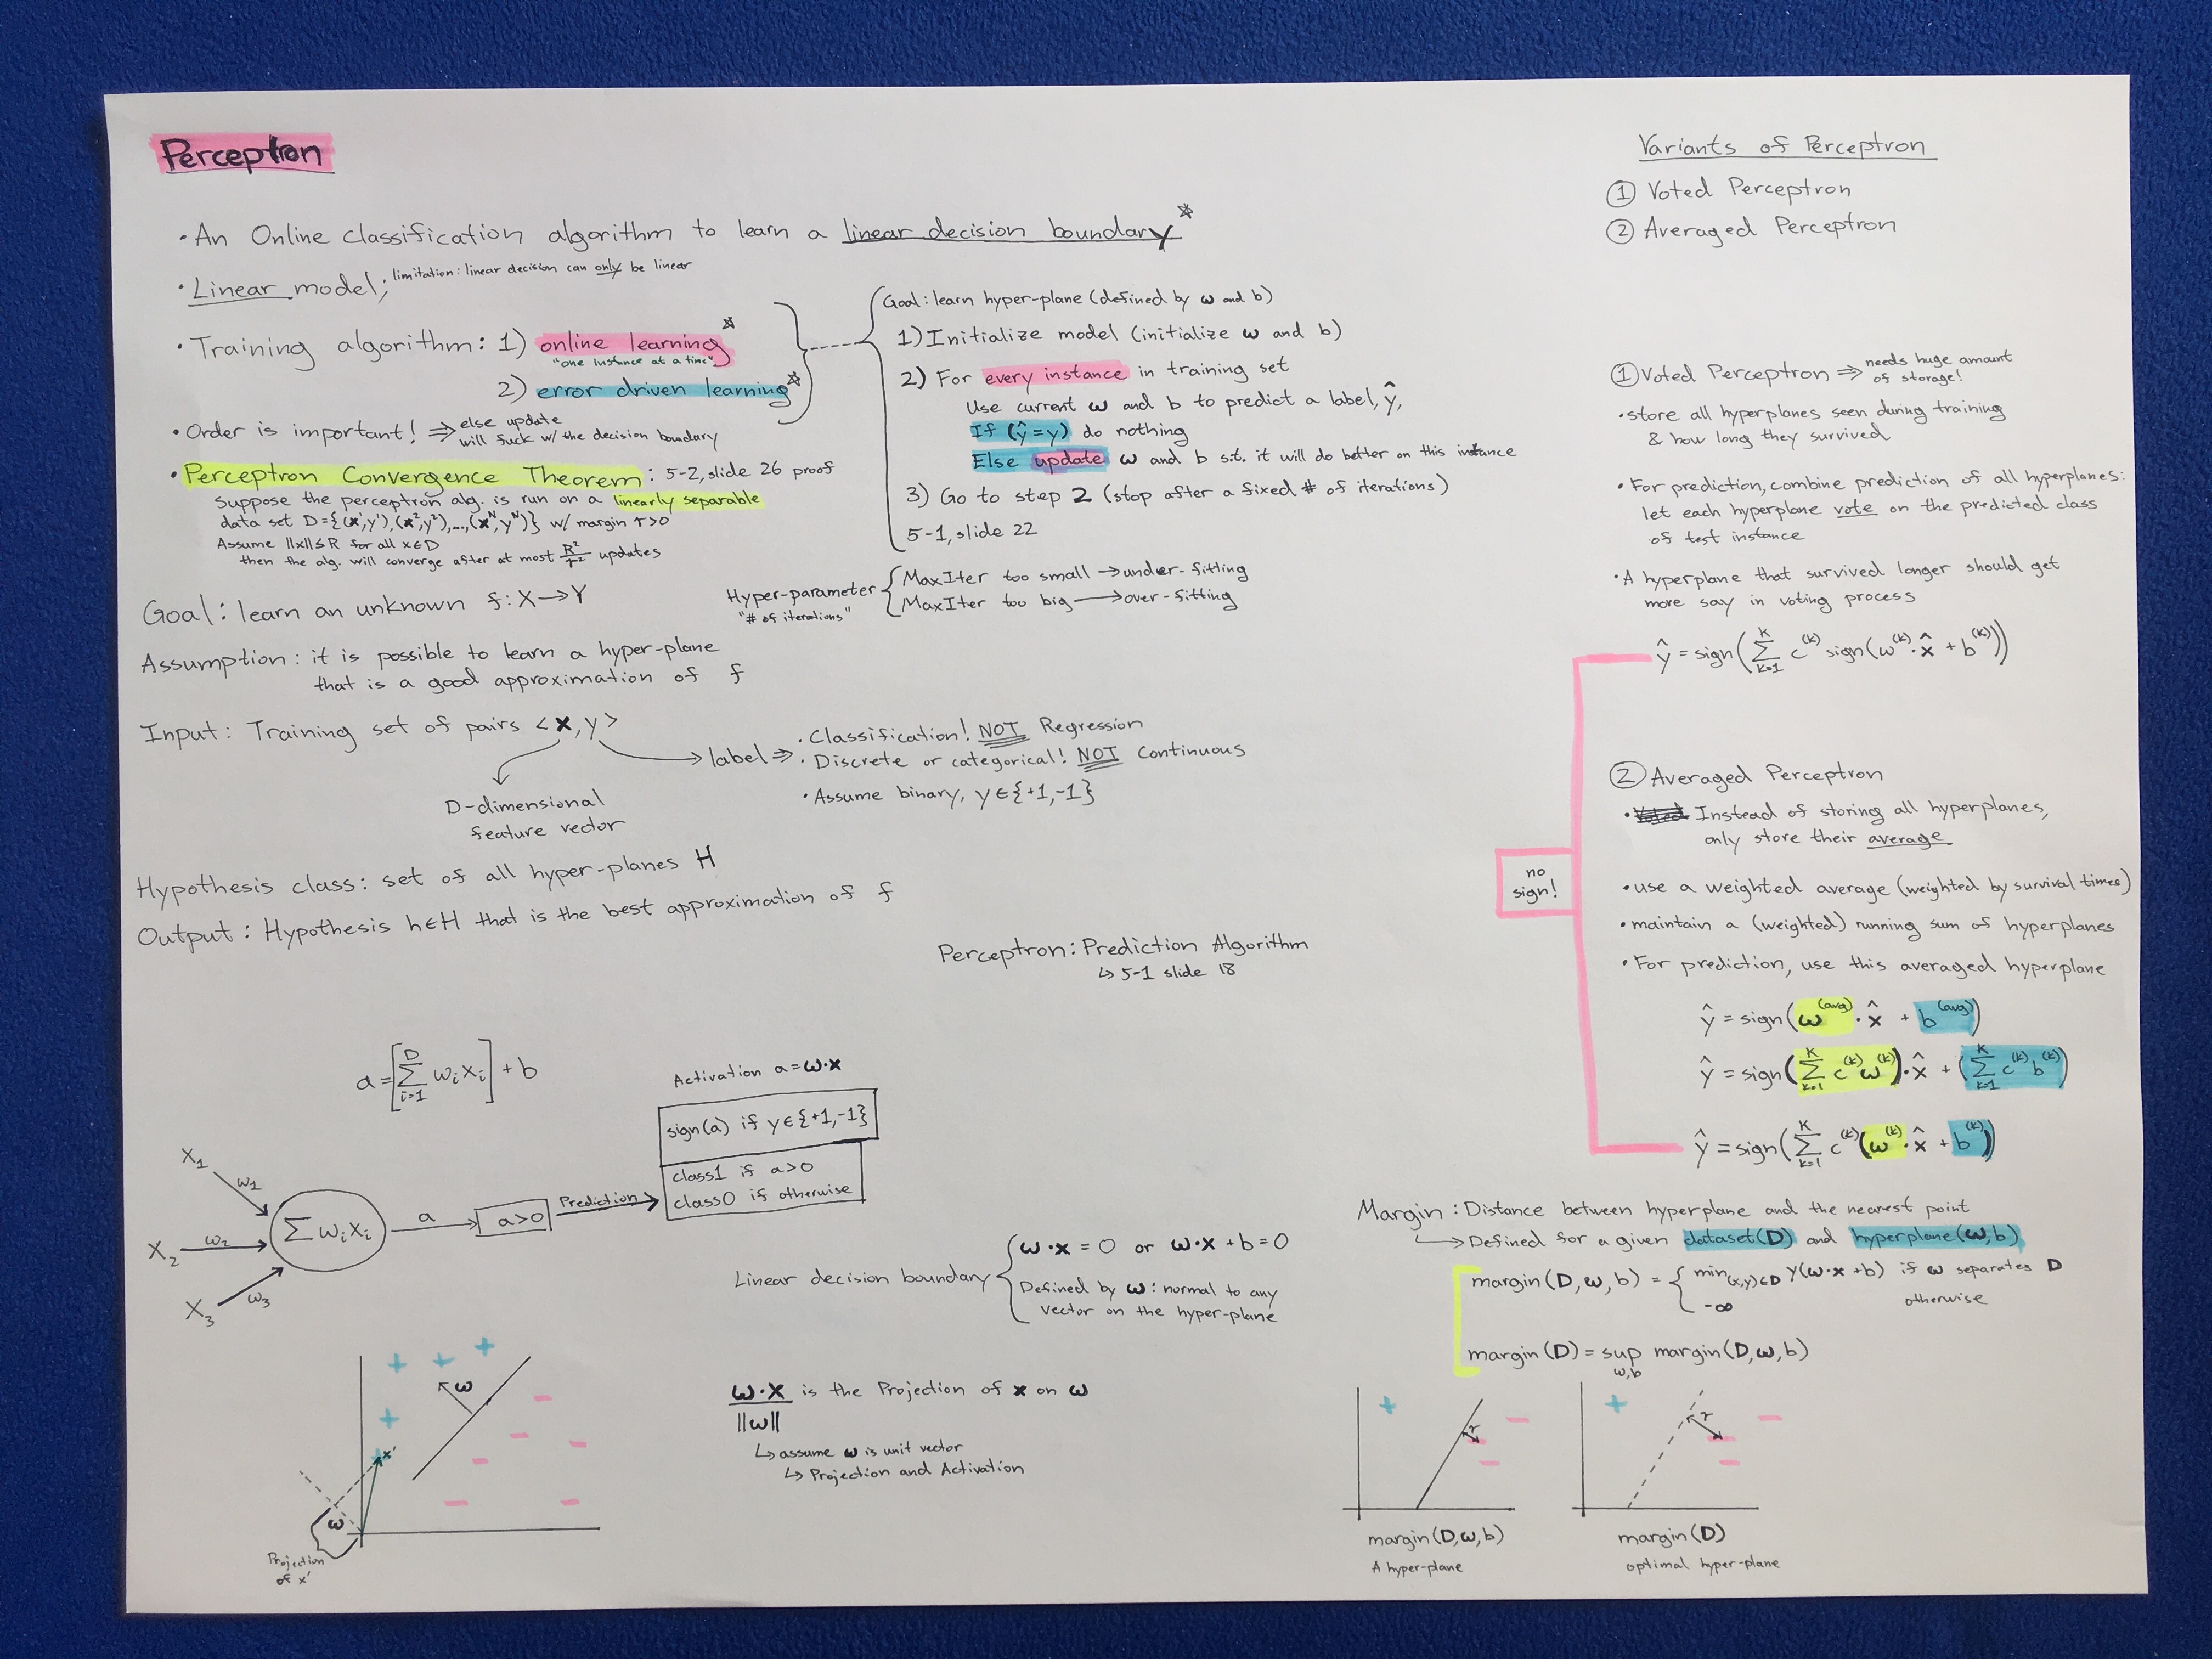 Perceptron
• An Online classification algorithm to learn a linear decision boundary ☆
• Linear model; limitation: linear decision can only be linear
• Training algorithm: 1) online learning ☆
"one instance at a time"
2) error driven learning ☆
• Order is important! ⇒ else update
will fuck w/ the decision boundary
• Perceptron Convergence Theorem: 5-2, slide 26 proof
Suppose the perceptron alg. is run on a linearly separable
data set D={(x¹,y¹),(x²,y²),...,(xᴺ,yᴺ)} w/ margin r>0
Assume ||x||≤R for all x∈D
then the alg. will converge after at most R²/r² updates
Goal: learn hyper-plane (defined by ω and b)
1) Initialize model (initialize ω and b)
2) For every instance in training set
Use current ω and b to predict a label, ŷ,
If (ŷ=y) do nothing
Else update ω and b s.t. it will do better on this instance
3) Go to step 2 (stop after a fixed # of iterations)
5-1, slide 22
Hyper-parameter { MaxIter too small → under-fitting
"# of iterations" MaxIter too big → over-fitting
Goal: learn an unknown f: X→Y
Assumption: it is possible to learn a hyper-plane
that is a good approximation of f
Input: Training set of pairs <x,y>
D-dimensional
feature vector
label ⇒ • Classification! NOT Regression
• Discrete or categorical! NOT Continuous
• Assume binary, y∈{+1,-1}
Hypothesis class: set of all hyper-planes H
Output: Hypothesis h∈H that is the best approximation of f
Perceptron: Prediction Algorithm
↳ 5-1 slide 18
a=[Σ_{i=1}^{D} ωᵢxᵢ]+b
Activation a=ω·x
sign(a) if y∈{+1,-1}
class1 if a>0
class0 if otherwise
X₁ ω₁
X₂ ω₂
X₃ ω₃
Σωᵢxᵢ
a
a>0
Prediction
Linear decision boundary { ω·x = 0 or ω·x +b=0
Defined by ω: normal to any
vector on the hyper-plane
ω
x'
ω
Projection
of x'
ω·x / ||ω|| is the Projection of x on ω
↳ assume ω is unit vector
↳ Projection and Activation
Variants of Perceptron
① Voted Perceptron
② Averaged Perceptron
① Voted Perceptron ⇒ needs huge amount
of storage!
• store all hyperplanes seen during training
& how long they survived
• For prediction, combine prediction of all hyperplanes:
let each hyperplane vote on the predicted class
of test instance
• A hyperplane that survived longer should get
more say in voting process
ŷ = sign(Σ_{k=1}^{K} c^(k) sign(ω^(k)·x̂ + b^(k)))
② Averaged Perceptron
• Voted Instead of storing all hyperplanes,
only store their average
• use a weighted average (weighted by survival times)
• maintain a (weighted) running sum of hyperplanes
• For prediction, use this averaged hyperplane
no
sign!
ŷ = sign(ω^(avg)·x̂ + b^(avg))
ŷ = sign((Σ_{k=1}^{K} c^(k) ω^(k))·x̂ + (Σ_{k=1}^{K} c^(k) b^(k))
ŷ = sign(Σ_{k=1}^{K} c^(k)(ω^(k)·x̂ + b^(k))
Margin: Distance between hyperplane and the nearest point
↳ Defined for a given dataset(D) and hyperplane(ω,b)
margin(D,ω,b) = { min_{(x,y)∈D} y(ω·x +b) if ω separates D
-∞ otherwise
margin(D) = sup_{ω,b} margin(D,ω,b)
r
margin(D,ω,b)
A hyper-plane
r
margin(D)
optimal hyper-plane